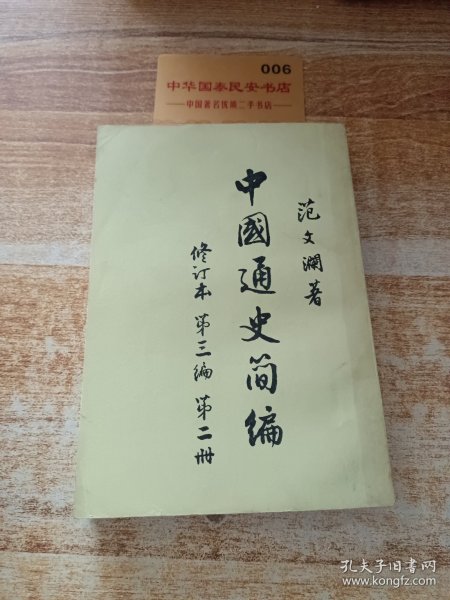 006
中华国泰民安书店
中国著名优质二手书店
范文瀾著
中國通史简编
修订本 第三编 第二册
孔夫子旧书网
www.kongfz.com